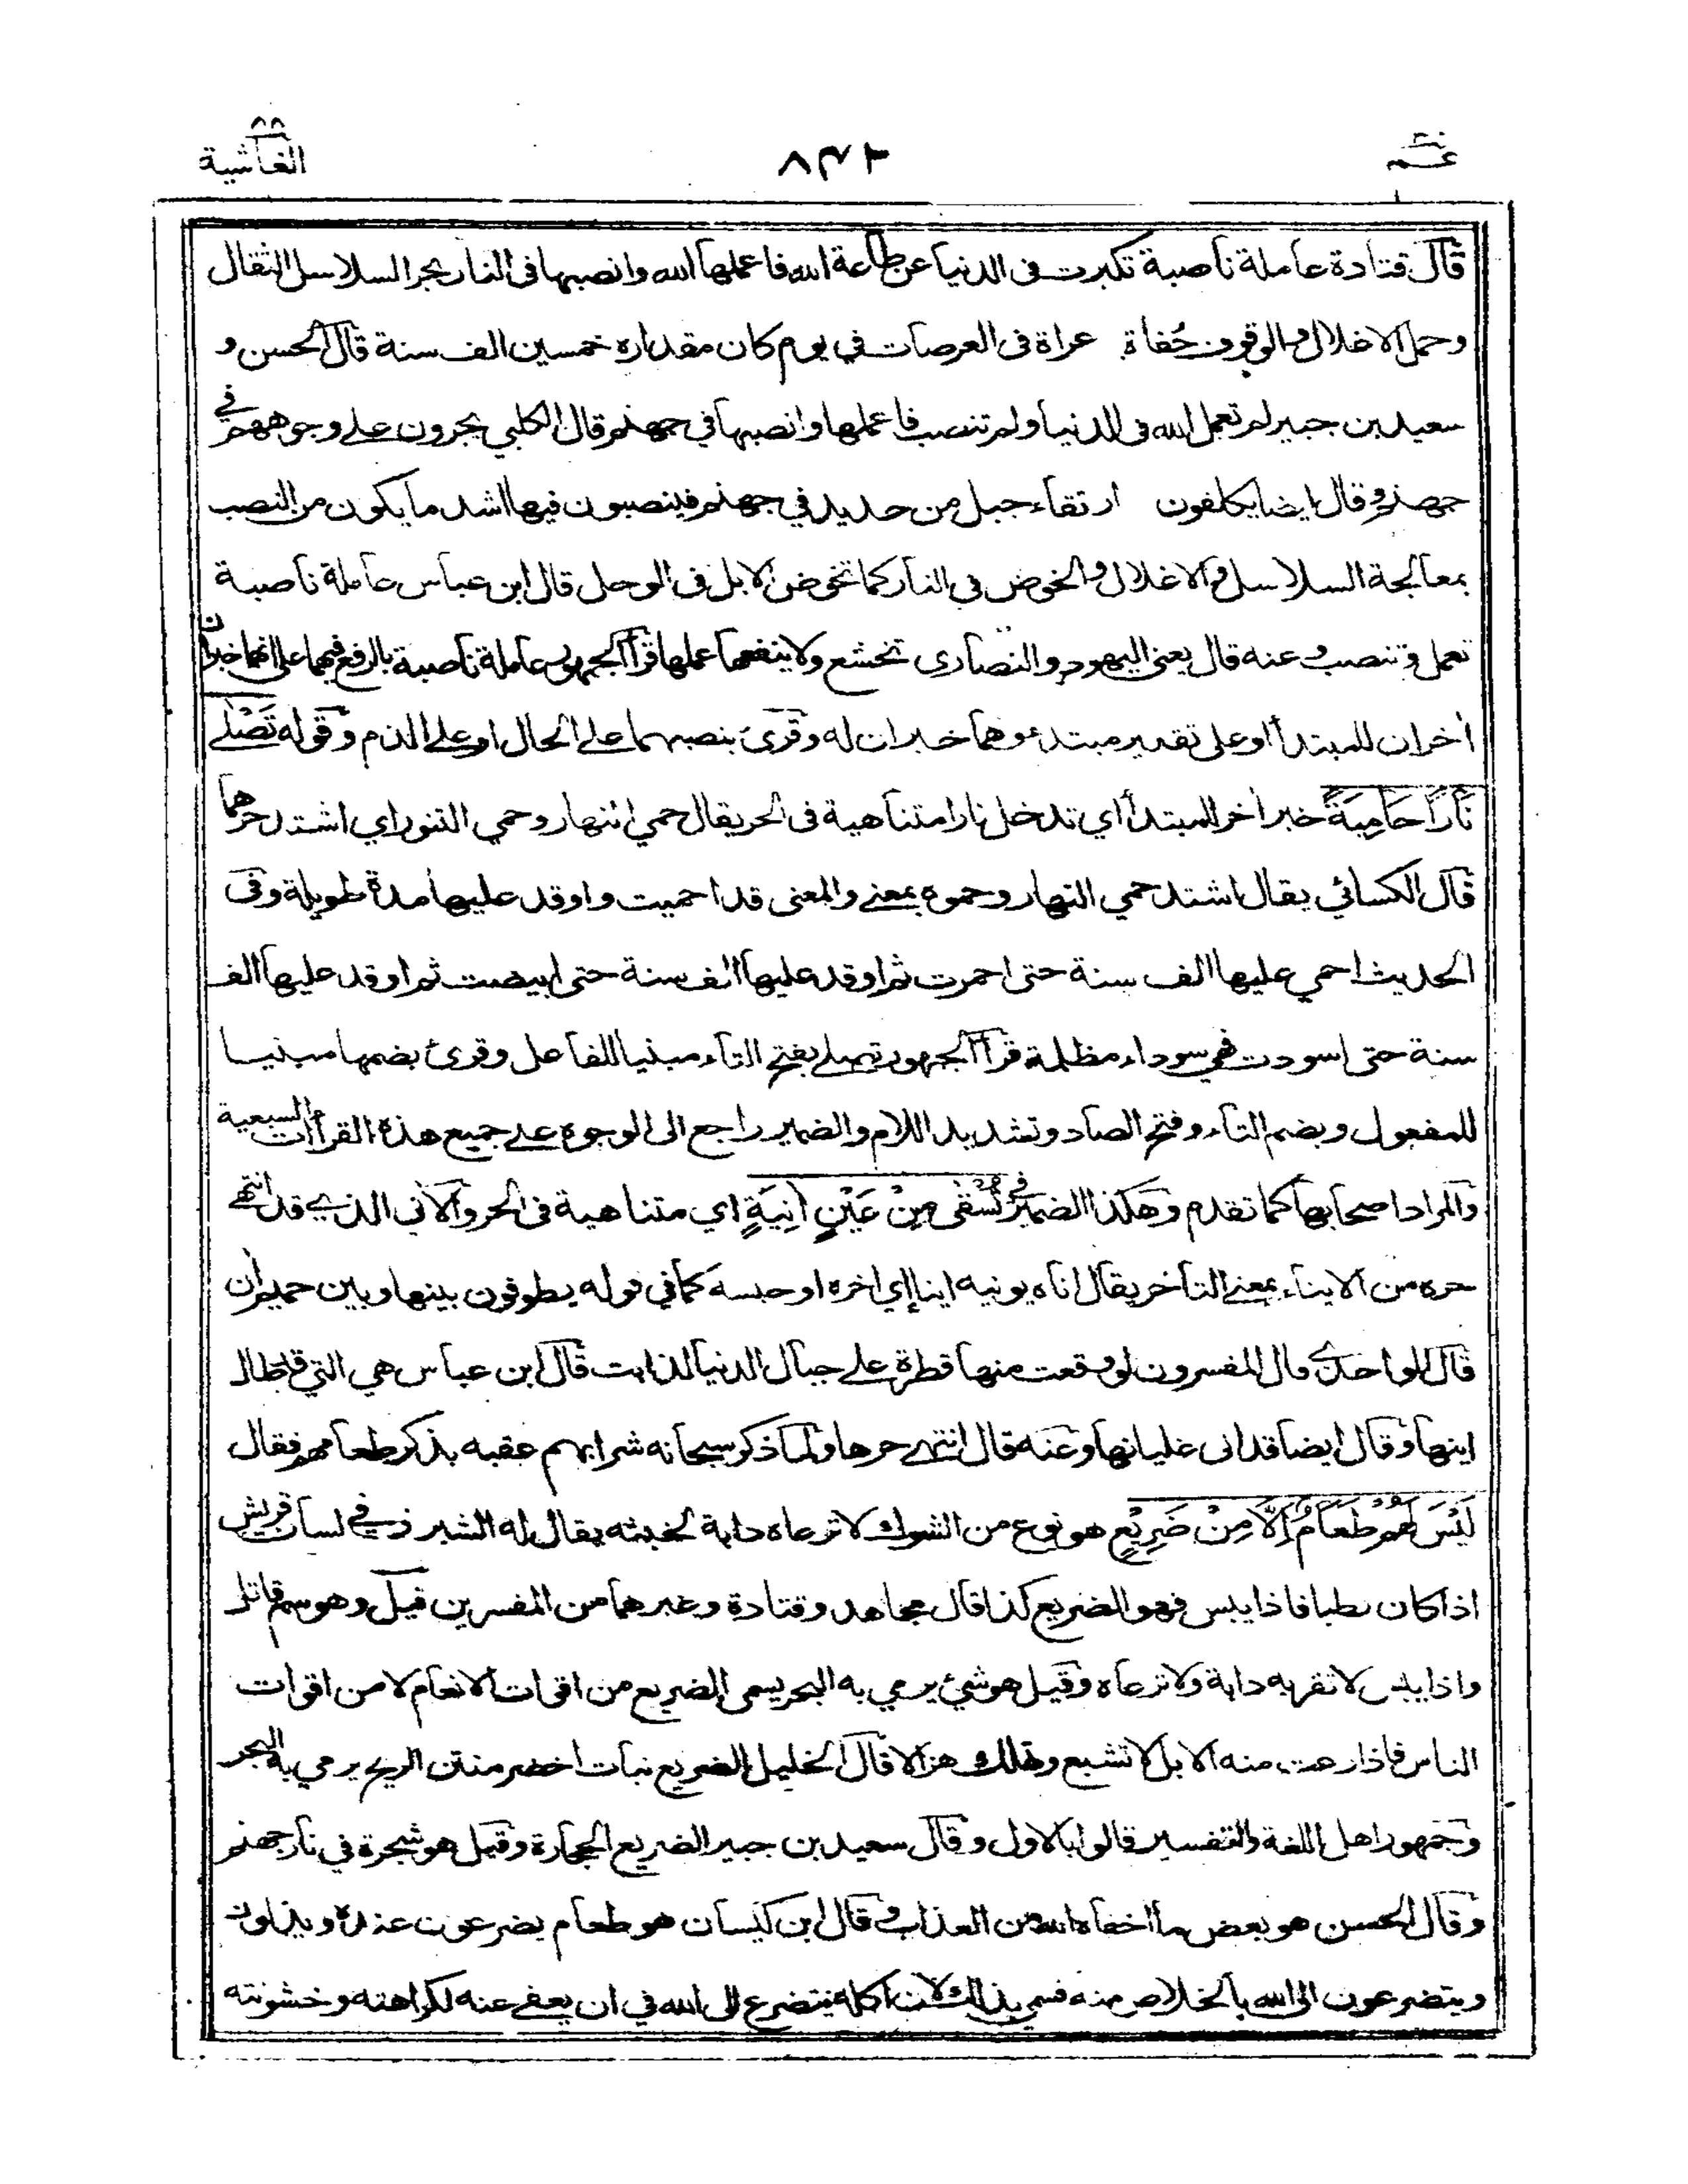 عم
٨٤٢
الغاشية ٨٨
قال قتادة عاملة ناصبة تكبرت فى الدنيا عن طاعة الله فاعملها الله وانصبها فى النار بجر السلاسل الثقال
وحمل الاغلال والوقوف حُفاة عراة فى العرصات في يوم كان مقداره خمسين الف سنة قال الحسن و
سعيد بن جبير لم تعمل لله فى الدنيا ولم تنصب فاعملها وانصبها في جهنم قال الكلبي يجرون على وجوههم في
جهنم وقال ايضا يكلفون ارتقاء جبل من حديد في جهنم فينصبون فيها اشد ما يكون من النصب
بمعالجة السلاسل والاغلال والخوض فى النار كما تخوض الابل فى الوحل قال ابن عباس عاملة ناصبة
تعمل وتنصب وعنه قال يعنى اليهود والنصارى تخشع ولا ينفعها عملها قرأ الجمهور عاملة ناصبة بالرفع فيهما على انهما خبران
أخران للمبتدأ او على تقدير مبتدء وهما خبران له وقرئ بنصبهما على الحال او على الذم وقوله تَصْلٰى
نَارًا حَامِيَةً خبر أخر للمبتدأ أي تدخل نارا متناهية فى الحر يقال حمي النهار وحمي التنور اي اشتد حرهما
قال الكسائي يقال اشتد حمي النهار وحموه بمعنى والمعنى قد احميت واوقد عليها مدة طويلة وفى
الحديث احمي عليها الف سنة حتى احمرت ثم اوقد عليها الف سنة حتى ابيضت ثم اوقد عليها الف
سنة حتى اسودت فهي سوداء مظلمة قرأ الجمهور تصلى بفتح التاء مبنيا للفاعل وقرئ بضمها مبنيا
للمفعول وبضم التاء وفتح الصاد وتشديد اللام والضمير راجع الى الوجوه على جميع هذه القرأات السبعية
والمراد اصحابها كما تقدم وهكذا الضمير في تُسْقٰى مِنْ عَيْنٍ اٰنِيَةٍ اي متناهية فى الحر والأنى الذي قد انتهى
حره من الايناء بمعنى التأخر يقال اناه يونيه ايناء اي اخره او حبسه كما في قوله يطوفون بينها وبين حميم اٰن
قال الواحدي قال المفسرون لو وقعت منها قطرة على جبال الدنيا لذابت قال ابن عباس هي التي قد طال
اينها وقال ايضا قد انى غليانها وعنه قال انتهى حرها ولما ذكر سبحانه شرابهم عقبه بذكر طعامهم فقال
لَيْسَ لَهُمْ طَعَامٌ اِلَّا مِنْ ضَرِيْعٍ هو نوع من الشوك لا ترعاه دابة لخبثه يقال له الشبرق في لسان قريش
اذا كان رطبا فاذا يبس فهو الضريع كذا قال مجاهد وقتادة وغيرهما من المفسرين قيل وهو سم قاتل
واذا يبس لا تقربه دابة ولا ترعاه وقيل هو شيء يرمي به البحر يسمى الضريع من اقوات الانعام لا من اقوات
الناس فاذا رعت منه الابل لا تشبع وهلك هزلا قال الخليل الضريع نبات اخضر منتن الريح يرمي به البحر
وجمهور اهل اللغة والتفسير قالوا بالاول وقال سعيد بن جبير الضريع الحجارة وقيل هو شجرة في نار جهنم
وقال الحسن هو بعض ما اخفاه الله من العذاب وقال ابن كيسان هو طعام يضرعون عنده ويذلون
ويتضرعون الى الله بالخلاص منه فسمي بذلك لان أكله يتضرع الى الله في ان يعفى عنه لكراهته وخشونته